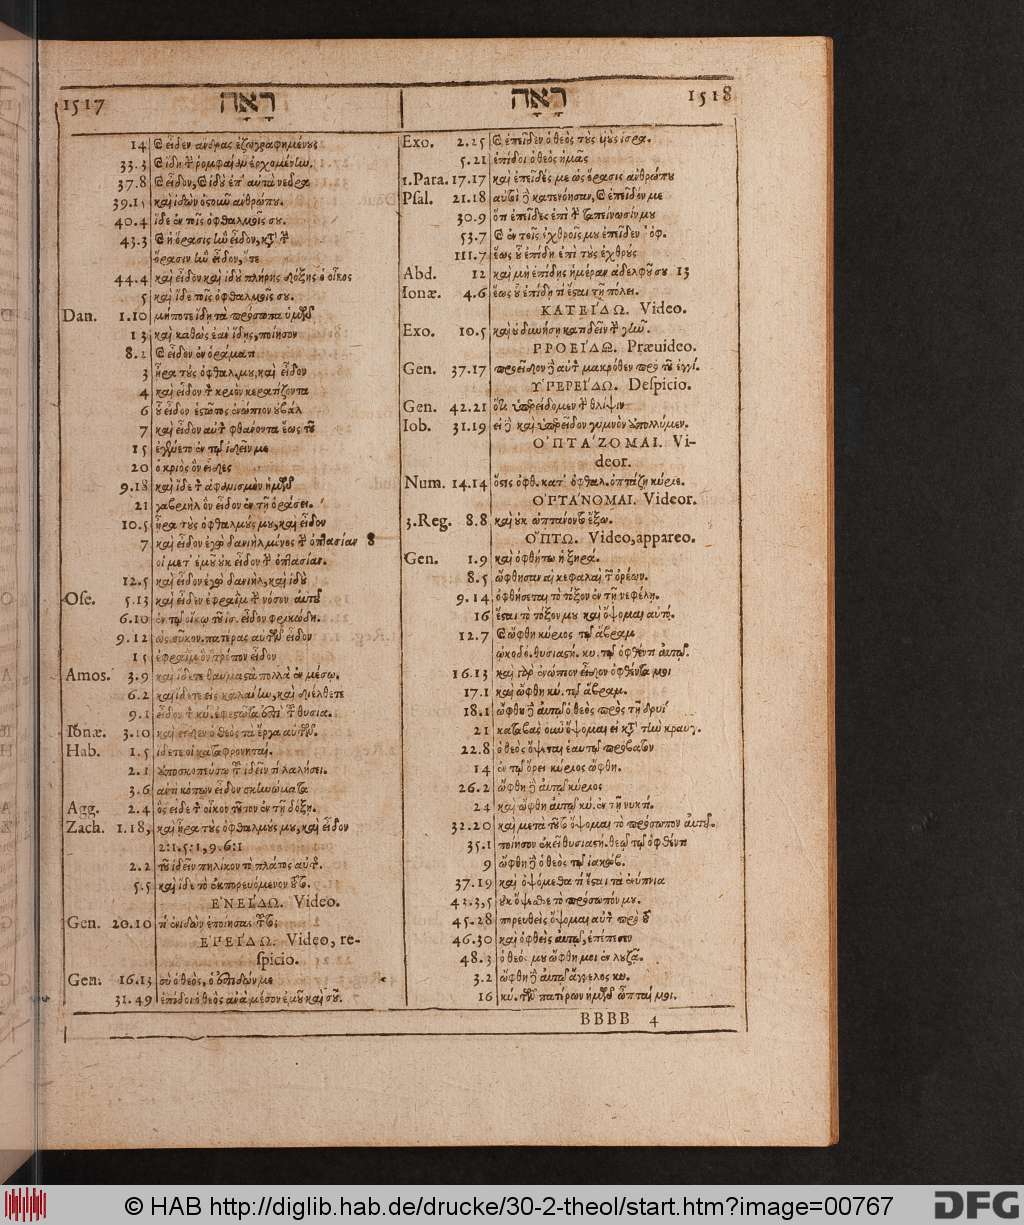 1517 רָאָה
14 καὶ εἶδεν ανδρας ἐζωγραφημένους
33.3 καὶ ἴδη τὴν ῥομφαίαν ἐρχομένην.
37.8 καὶ εἶδον, καὶ ἰδοὺ ἐπ' αυτὰ νεῦρα
39.15 καὶ ἰδὼν ὀστοῦν ανθρώπου.
40.4 ἴδε ἐν τοῖς ὀφθαλμοῖς σου.
43.3 καὶ ἡ ὅρασις ἣν εἶδον, κατὰ τὴν
ὅρασιν ἣν εἶδον, ὅτε
44.4 καὶ εἶδον καὶ ἰδοὺ πλήρης δόξης ὁ οἶκος
5 καὶ ἴδε τοῖς ὀφθαλμοῖς σου.
Dan. 1.10 μήποτε ἴδη τὰ πρόσωπα ὑμῶν
13 καὶ καθὼς ἐὰν ἴδης, ποίησον
8.2 καὶ εἶδον ἐν ὁράματι
3 ἦρα τοὺς ὀφθαλ. μου, καὶ εἶδον
4 καὶ εἶδον τὸν κριὸν κερατίζοντα
6 οὗ εἶδον ἑστῶτος ἐνώπιον οὐβάλ
7 καὶ εἶδον αυτὸν φθάνοντα ἕως τοῦ
15 ἐγένετο ἐν τῷ ἰδεῖν με
20 ὁ κριὸς ὃν εἶδες
9.18 καὶ ἴδε τὸν ἀφανισμὸν ἡμῶν
21 γαβριὴλ ὃν εἶδον ἐν τῆ ὁράσει.
10.5 ἦρα τοὺς ὀφθαλμούς μου, καὶ εἶδον
7 καὶ εἶδον ἐγὼ δανιὴλ μόνος τὴν ὀπτασίαν 8
οἱ μετ' ἐμοῦ οὐκ εἶδον τὴν ὀπτασίαν.
12.5 καὶ εἶδον ἐγὼ δανιὴλ, καὶ ἰδοὺ
Ose. 5.13 καὶ εἶδεν ἐφραὶμ τὴν νόσον αὐτοῦ
6.10 ἐν τῷ οἴκῳ τοῦ ισ. εἶδον φρικώδη.
9.12 ὡς σῦκον. πατέρας αυτῶν εἶδον
15 ἐφραὶμ ὃν τρόπον εἶδον
Amos. 3.9 καὶ ἴδετε θαυμαστὰ πολλὰ ἐν μέσῳ.
6.2 καὶ ἴδετε εἰς καλάνην, καὶ διέλθετε
9.1 εἶδον τὸν κύ. ἐφεστῶτα ἐπὶ τοῦ θυσια.
Ionæ. 3.10 καὶ εἶδεν ὁ θεὸς τὰ ἔργα αυτῶν.
Hab. 1.5 ἴδετε οἱ καταφρονηταὶ.
2.1 ἀποσκοπεύσω τοῦ ἰδεῖν τί λαλήσει.
3.6 αντὶ κόπων εἶδον σκηνώματα
Agg. 2.4 ὃς εἶδε τὸν οἶκον τοῦτον ἐν τῆ δόξη.
Zach. 1.18, καὶ ἦρα τοὺς ὀφθαλμούς μου, καὶ εἶδον
2:1. 5:1, 9. 6:1
2.2 τοῦ ἰδεῖν πηλίκον τὸ πλάτος αὐτῆς.
5.5 καὶ ἴδε τὸ ἐκπορευόμενον τοῦτο.
ΕΝΕΙΔΩ. Video.
Gen. 20.10 τί ἐνιδὼν ἐποίησας τοῦτο;
ΕΡΕΙΔΩ. Video, re-
spicio.
Gen. 16.13 σὺ ὁ θεὸς, ὁ ἐπιδών με
31.49 ἐπίδοι ὁ θεὸς ἀνὰ μέσον ἐμοῦ καὶ σοῦ.
רָאָה 1518
Exo. 2.25 καὶ ἐπεῖδεν ὁ θεὸς τοὺς υἱοὺς ισρα.
5.21 ἐπίδοι ὁ θεὸς ἡμᾶς
1.Para. 17.17 καὶ ἐπεῖδές με ὡς ὅρασις ανθρώπου
Psal. 21.18 αυτοὶ δὲ κατενόησαν, καὶ ἐπεῖδόν με
30.9 ὅτι ἐπεῖδες ἐπὶ τὴν ταπείνωσίν μου
53.7 καὶ ἐν τοῖς ἐχθροῖς μου ἐπεῖδεν ὁ ὀφ.
111.7 ἕως οὗ ἐπίδη ἐπὶ τοὺς ἐχθροὺς
Abd. 12 καὶ μὴ ἐπίδης ἡμέραν αδελφοῦ σου 13
Ionæ. 4.6 ἕως οὗ ἐπίδη τί ἔσται τῆ πόλει.
ΚΑΤΕΙΔΩ. Video.
Exo. 10.5 καὶ οὐ δυνήση κατιδεῖν τὴν γῆν.
ΡΡΟΕΙΔΩ. Prævideo.
Gen. 37.17 προεῖδον δὲ αὐτὸν μακρόθεν πρὸ τοῦ ἐγγί.
ΥΡΕΡΕΙΔΩ. Despicio.
Gen. 42.21 ὅτι ὑπερείδομεν τὴν θλίψιν
Iob. 31.19 εἰ δὲ καὶ ὑπερεῖδον γυμνὸν ἀπολλύμεν.
ΟΠΤΑΖΟΜΑΙ. Vi-
deor.
Num. 14.14 ὅστις ὀφθ. κατ' ὀφθαλ. ὀπτάζη κύριε.
ΟΡΤΑΝΟΜΑΙ. Videor.
3.Reg. 8.8 καὶ οὐκ ὠπτάνοντο ἔξω.
ΟΠΤΩ. Video, appareo.
Gen. 1.9 καὶ ὀφθήτω ἡ ξηρά.
8.5 ὤφθησαν αἱ κεφαλαὶ τῶν ὀρέων.
9.14 ὀφθήσεται τὸ τόξον ἐν τῆ νεφέλη.
16 ἔσται τὸ τόξον μου καὶ ὄψομαι αὐτό.
12.7 καὶ ὤφθη κύριος τῷ ἄβραμ
ὠκοδό. θυσιαστή. κυ. τῷ ὀφθέντι αὐτῷ.
16.13 καὶ γὰρ ἐνώπιον εἶδον ὀφθέντα μοι
17.1 καὶ ὤφθη κύ. τῷ ἄβραμ.
18.1 ὤφθη δὲ αὐτῷ ὁ θεὸς πρὸς τῆ δρυῒ
21 καταβὰς οὖν ὄψομαι εἰ κατὰ τὴν κραυγ.
22.8 ὁ θεὸς ὄψεται ἑαυτῷ πρόβατον
14 ἐν τῷ ὄρει κύριος ὤφθη.
26.2 ὤφθη δὲ αὐτῷ κύριος
24 καὶ ὤφθη αὐτῷ κύ. ἐν τῆ νυκτί.
32.20 καὶ μετὰ τοῦτο ὄψομαι τὸ πρόσωπον αὐτοῦ.
35.1 ποίησον ἐκεῖ θυσιαστή. θεῷ τῷ ὀφθέντι
9 ὤφθη δὲ ὁ θεὸς τῷ ἰακώβ.
37.19 καὶ ὀψόμεθα τί ἔσται τὰ ἐνύπνια
43.3,5 οὐκ ὄψεσθε τὸ πρόσωπόν μου.
45.28 πορευθεὶς ὄψομαι αὐτὸν πρὸ τοῦ
46.30 καὶ ὀφθεὶς αὐτῷ, ἐπέπεσεν
48.3 ὁ θεός μου ὤφθη μοι ἐν λουζᾶ.
3.2 ὤφθη δὲ αὐτῷ ἄγγελος κυ.
16 κύ. τῶν πατέρων ἡμῶν ὦπταί μοι.
BBBB 4
© HAB http://diglib.hab.de/drucke/30-2-theol/start.htm?image=00767
DFG